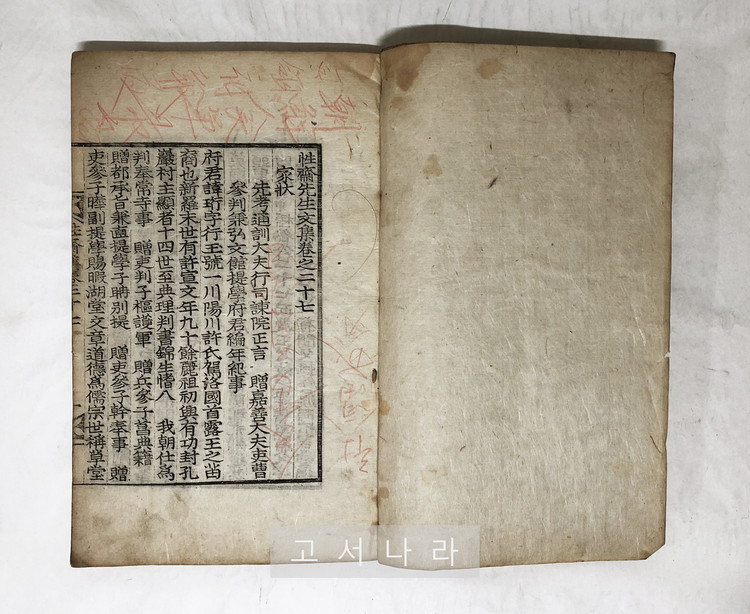 性齋先生文集卷之二十七
家狀
先考通訓大夫行司諫院正言 贈嘉善大夫吏曹
參判兼弘文館提學府君編年紀事
府君諱珩字行玉號一川陽川許氏駕洛國首露王之苗
裔也新羅末世有許宣文年九十餘麗祖初興有功封孔
巖村主顯者十四世至典理判書錦生愭八 我朝仕爲
判奉常寺事 贈吏判子樞護軍 贈兵參子菖典籍
贈都承旨兼直提學子聃別提 贈吏參子幹奉事 贈
吏參子曄副提學賜暇湖堂文章道德爲儒宗世稱草堂
고서나라